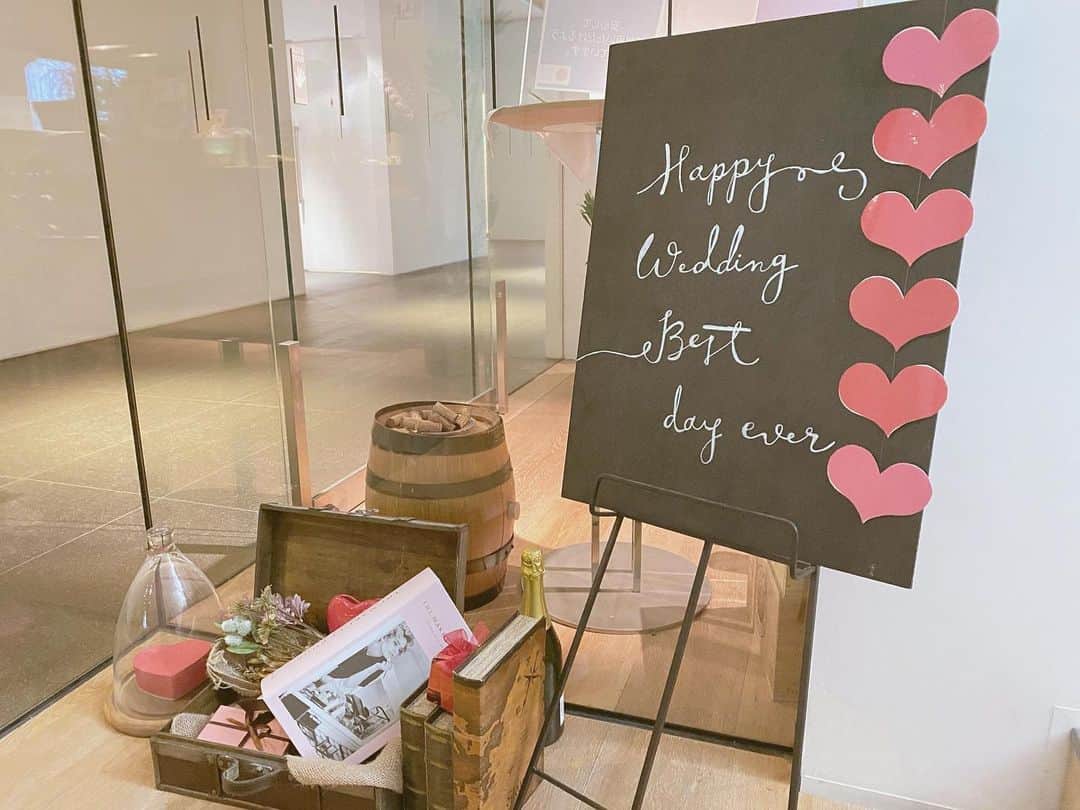 Happy
Wedding
Best
day ever